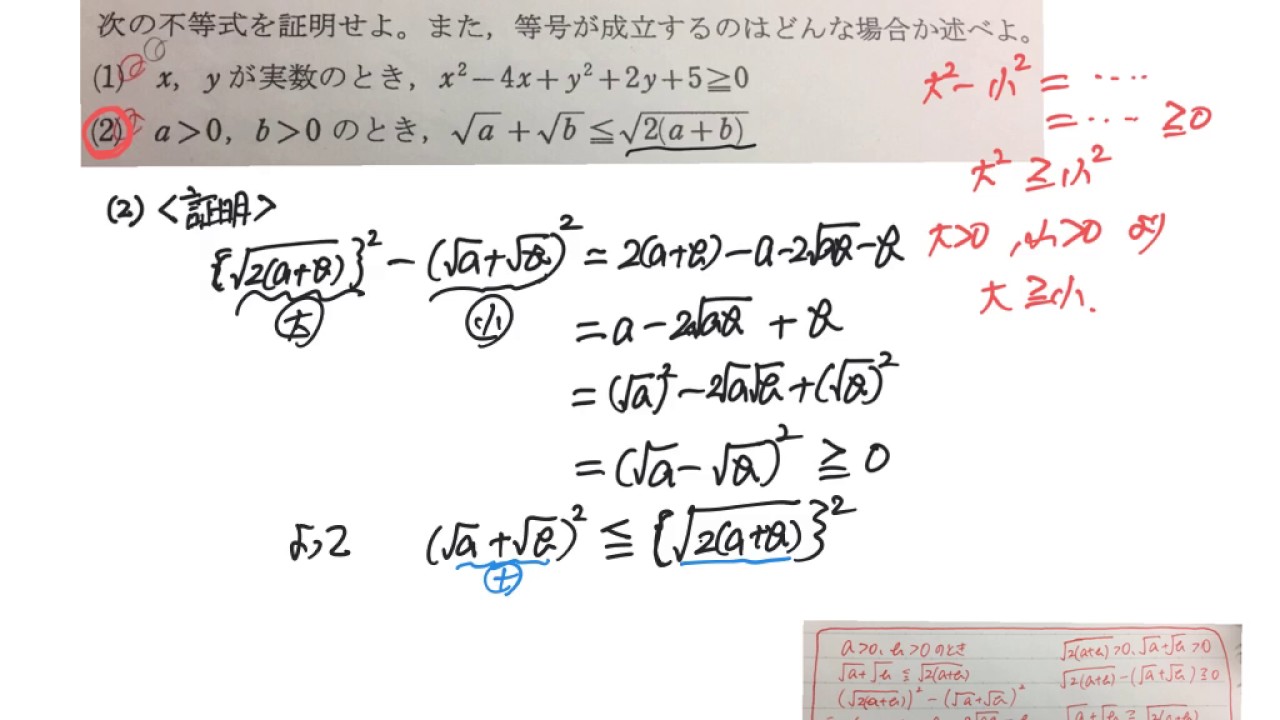 次の不等式を証明せよ。また，等号が成立するのはどんな場合か述べよ。
(1) x，yが実数のとき，x²−4x+y²+2y+5≧0
(2) a>0，b>0 のとき，√a+√b≦√2(a+b)
大²−小²=‥‥
=‥‥ ≧0
大²≧小²
大>0，小>0 より
大≧小.
(2)<証明>
{√2(a+b)}²−(√a+√b)²=2(a+b)−a−2√ab−b
大 小
=a−2√ab+b
=(√a)²−2√a√b+(√b)²
=(√a−√b)²≧0
よって (√a+√b)²≦{√2(a+b)}²
+
a>0、b>0のとき
√a+√b≦√2(a+b)
(√2(a+b))²−(√a+√b)²
√2(a+b)>0、√a+√b>0
√2(a+b)−(√a+√b)≧0